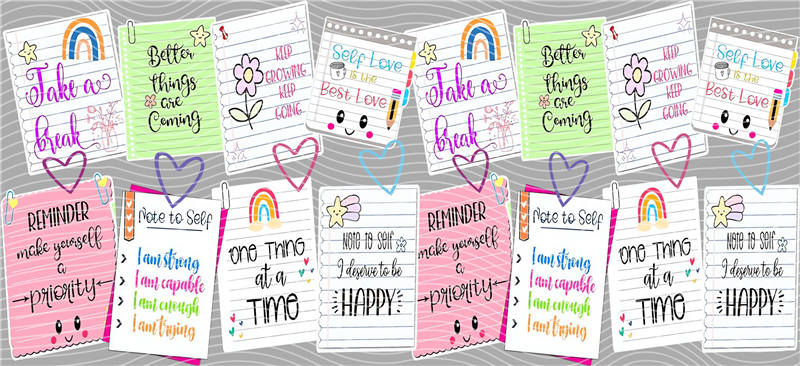 Take a
break
Better
Things
are
Coming
KEEP
GROWING
KEEP
GOING
Self Love
is the
Best Love
Take a
break
Better
Things
are
Coming
KEEP
GROWING
KEEP
GOING
Self Love
is the
Best Love
REMINDER
make yourself
a
priority
Note to Self
I am strong
I am capable
I am enough
I am trying
ONE THING
at a
TIME
NOTE to SELF
I deserve to be
HAPPY
REMINDER
make yourself
a
priority
Note to Self
I am strong
I am capable
I am enough
I am trying
ONE THING
at a
TIME
NOTE to SELF
I deserve to be
HAPPY